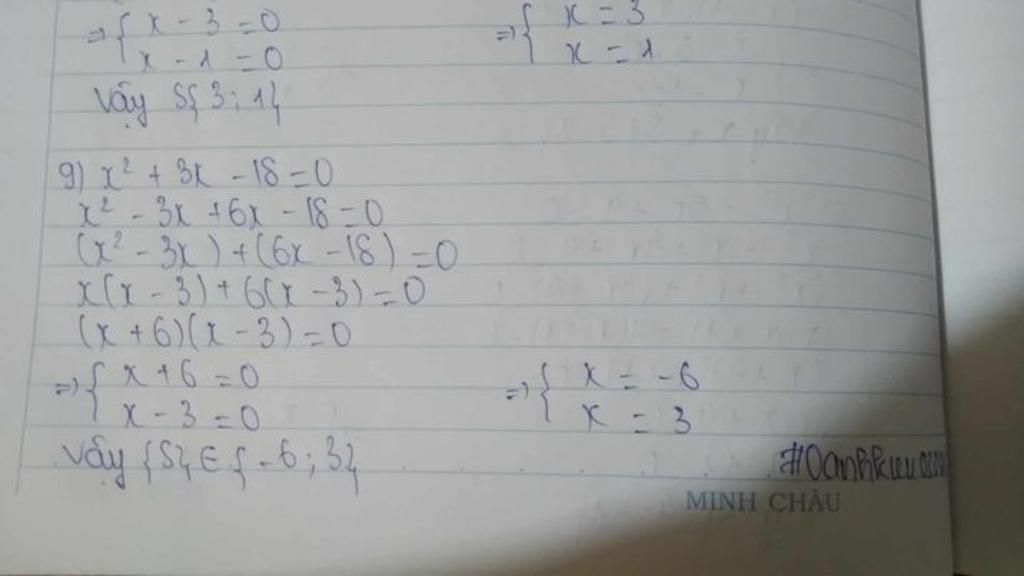 => { x - 3 = 0 => { x = 3
x - 1 = 0 x = 1
Vậy S{ 3 ; 1}
g) x² + 3x - 18 = 0
x² - 3x + 6x - 18 = 0
(x² - 3x) + (6x - 18) = 0
x(x - 3) + 6(x - 3) = 0
(x + 6)(x - 3) = 0
=> { x + 6 = 0 => { x = -6
x - 3 = 0 x = 3
Vậy {S} ∈ { -6 ; 3}
MINH CHÂU